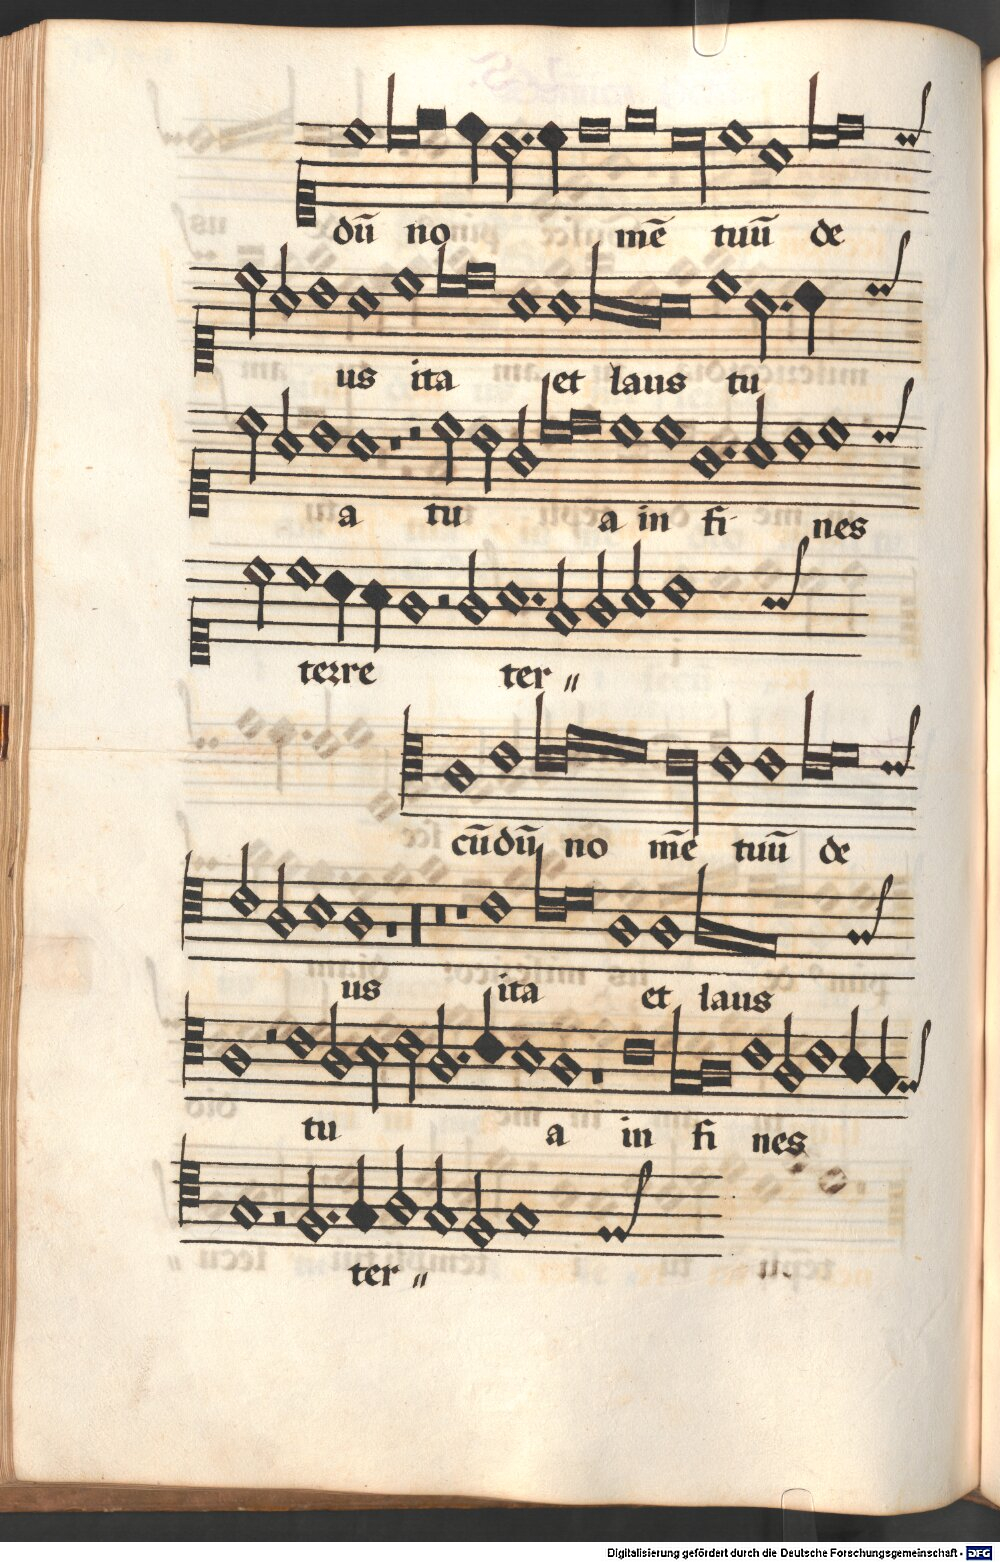 dū no mē tuū de
us ita et laus tu
a tu a in fi nes
terre ter〃
cūdū no mē tuū de
us ita et laus
tu a in fi nes
ter〃
Digitalisierung gefördert durch die Deutsche Forschungsgemeinschaft - DFG